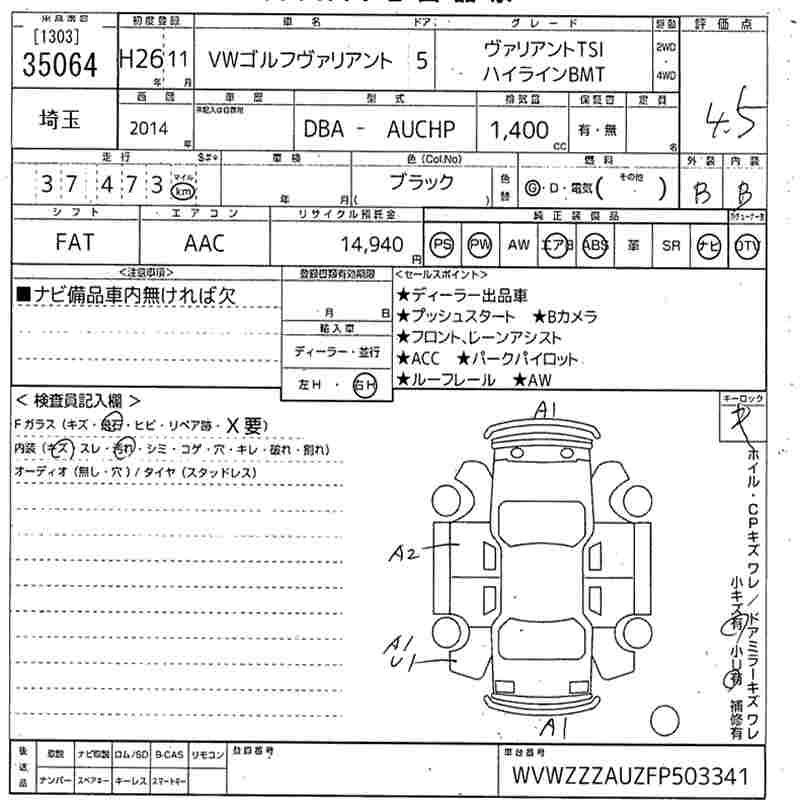 出品番号 初度登録 車名 ドア グレード 駆動 評価点
[1303]
35064 H26年 11月 VWゴルフヴァリアント 5 ヴァリアントTSI ハイラインBMT 2WD・4WD 4.5
埼玉
西暦 車歴 型式 排気量 保証書 定員
2014年 未記入は自家用 DBA - AUCHP 1,400cc 有・無 名
走行 S# 車検 色(Col.No) 燃料 外装 内装
37473 マイル km 年 月 ブラック ( ) 色替 G・D・電気( その他 ) B B
シフト エアコン リサイクル預託金 純正装備品
FAT AAC 14,940円 PS PW AW エアB ABS 革 SR ナビ TV
<注意事項> 登録書類有効期限 <セールスポイント>
■ナビ備品車内無ければ欠
月 日
輸入車
ディーラー・並行
左H・右H
★ディーラー出品車
★プッシュスタート ★Bカメラ
★フロント、レーンアシスト
★ACC ★パークパイロット
★ルーフレール ★AW
< 検査員記入欄 >
Fガラス(キズ・飛石・ヒビ・リペア跡・X要)
内装(キズ・スレ・汚れ・シミ・コゲ・穴・キレ・破れ・割れ)
オーディオ(無し・穴)/タイヤ(スタッドレス)
キーロック
A1
A2
A1
U1
A1
ホイル・CPキズ ワレ/ドアミラーキズ ワレ
小キズ有 小U有 補修有
後送品 取説 ナビ取説 ロム/SD B-CAS リモコン 登録番号 車台番号
ナンバー スペアキー キーレス スマートキー
WVWZZZAUZFP503341